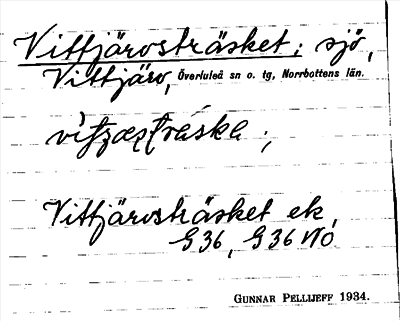 Vittjärvsträsket; sjö,
Vittjärv, Överluleå sn o. tg, Norrbottens län.
Vittjärvsträsket ek,
G36, G36 NO
GUNNAR PELLIJEFF 1934.